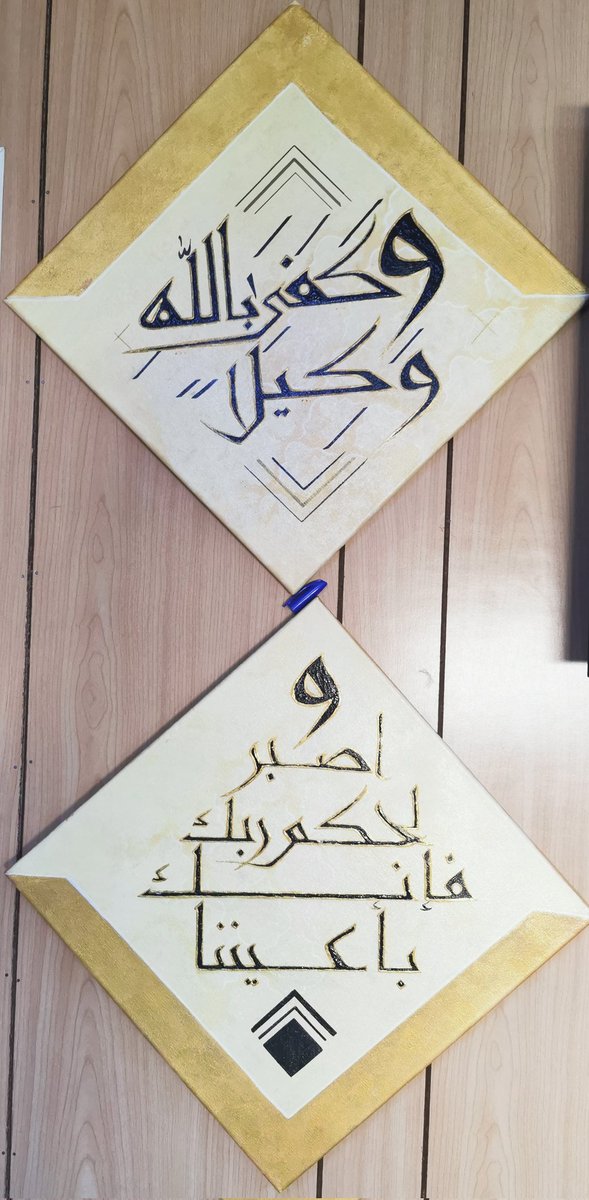 وكفى بالله
وكيلا
و
اصبر
لحكم ربك
فإنك
بأعيننا